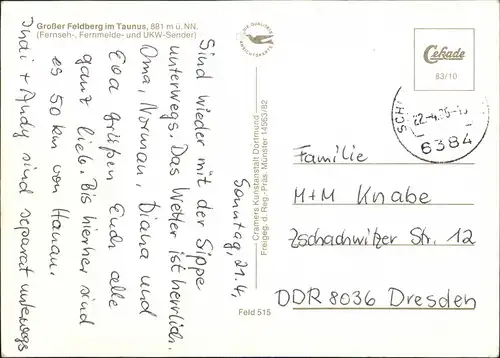 Großer Feldberg im Taunus, 881 m ü. NN.
(Fernseh-, Fernmelde- und UKW-Sender)
Sonntag, 21.4.
Sind wieder mit der Sippe
unterwegs. Das Wetter ist herrlich.
Oma, Norman, Diana und
Eva grüßen Euch alle
ganz lieb. Bis hierher sind
es 50 km von Hanau.
Indi + Andy sind separat unterwegs
DIE QUALITÄTS
ANSICHTSKARTE
Cramers Kunstanstalt Dortmund
Freigeg. d. Reg.-Präs. Münster 14563/82
Feld 515
Cekade
83/10
SCH
22.-4.85-15
6384
Familie
M+M Knabe
Zschachwitzer Str. 12
DDR 8036 Dresden